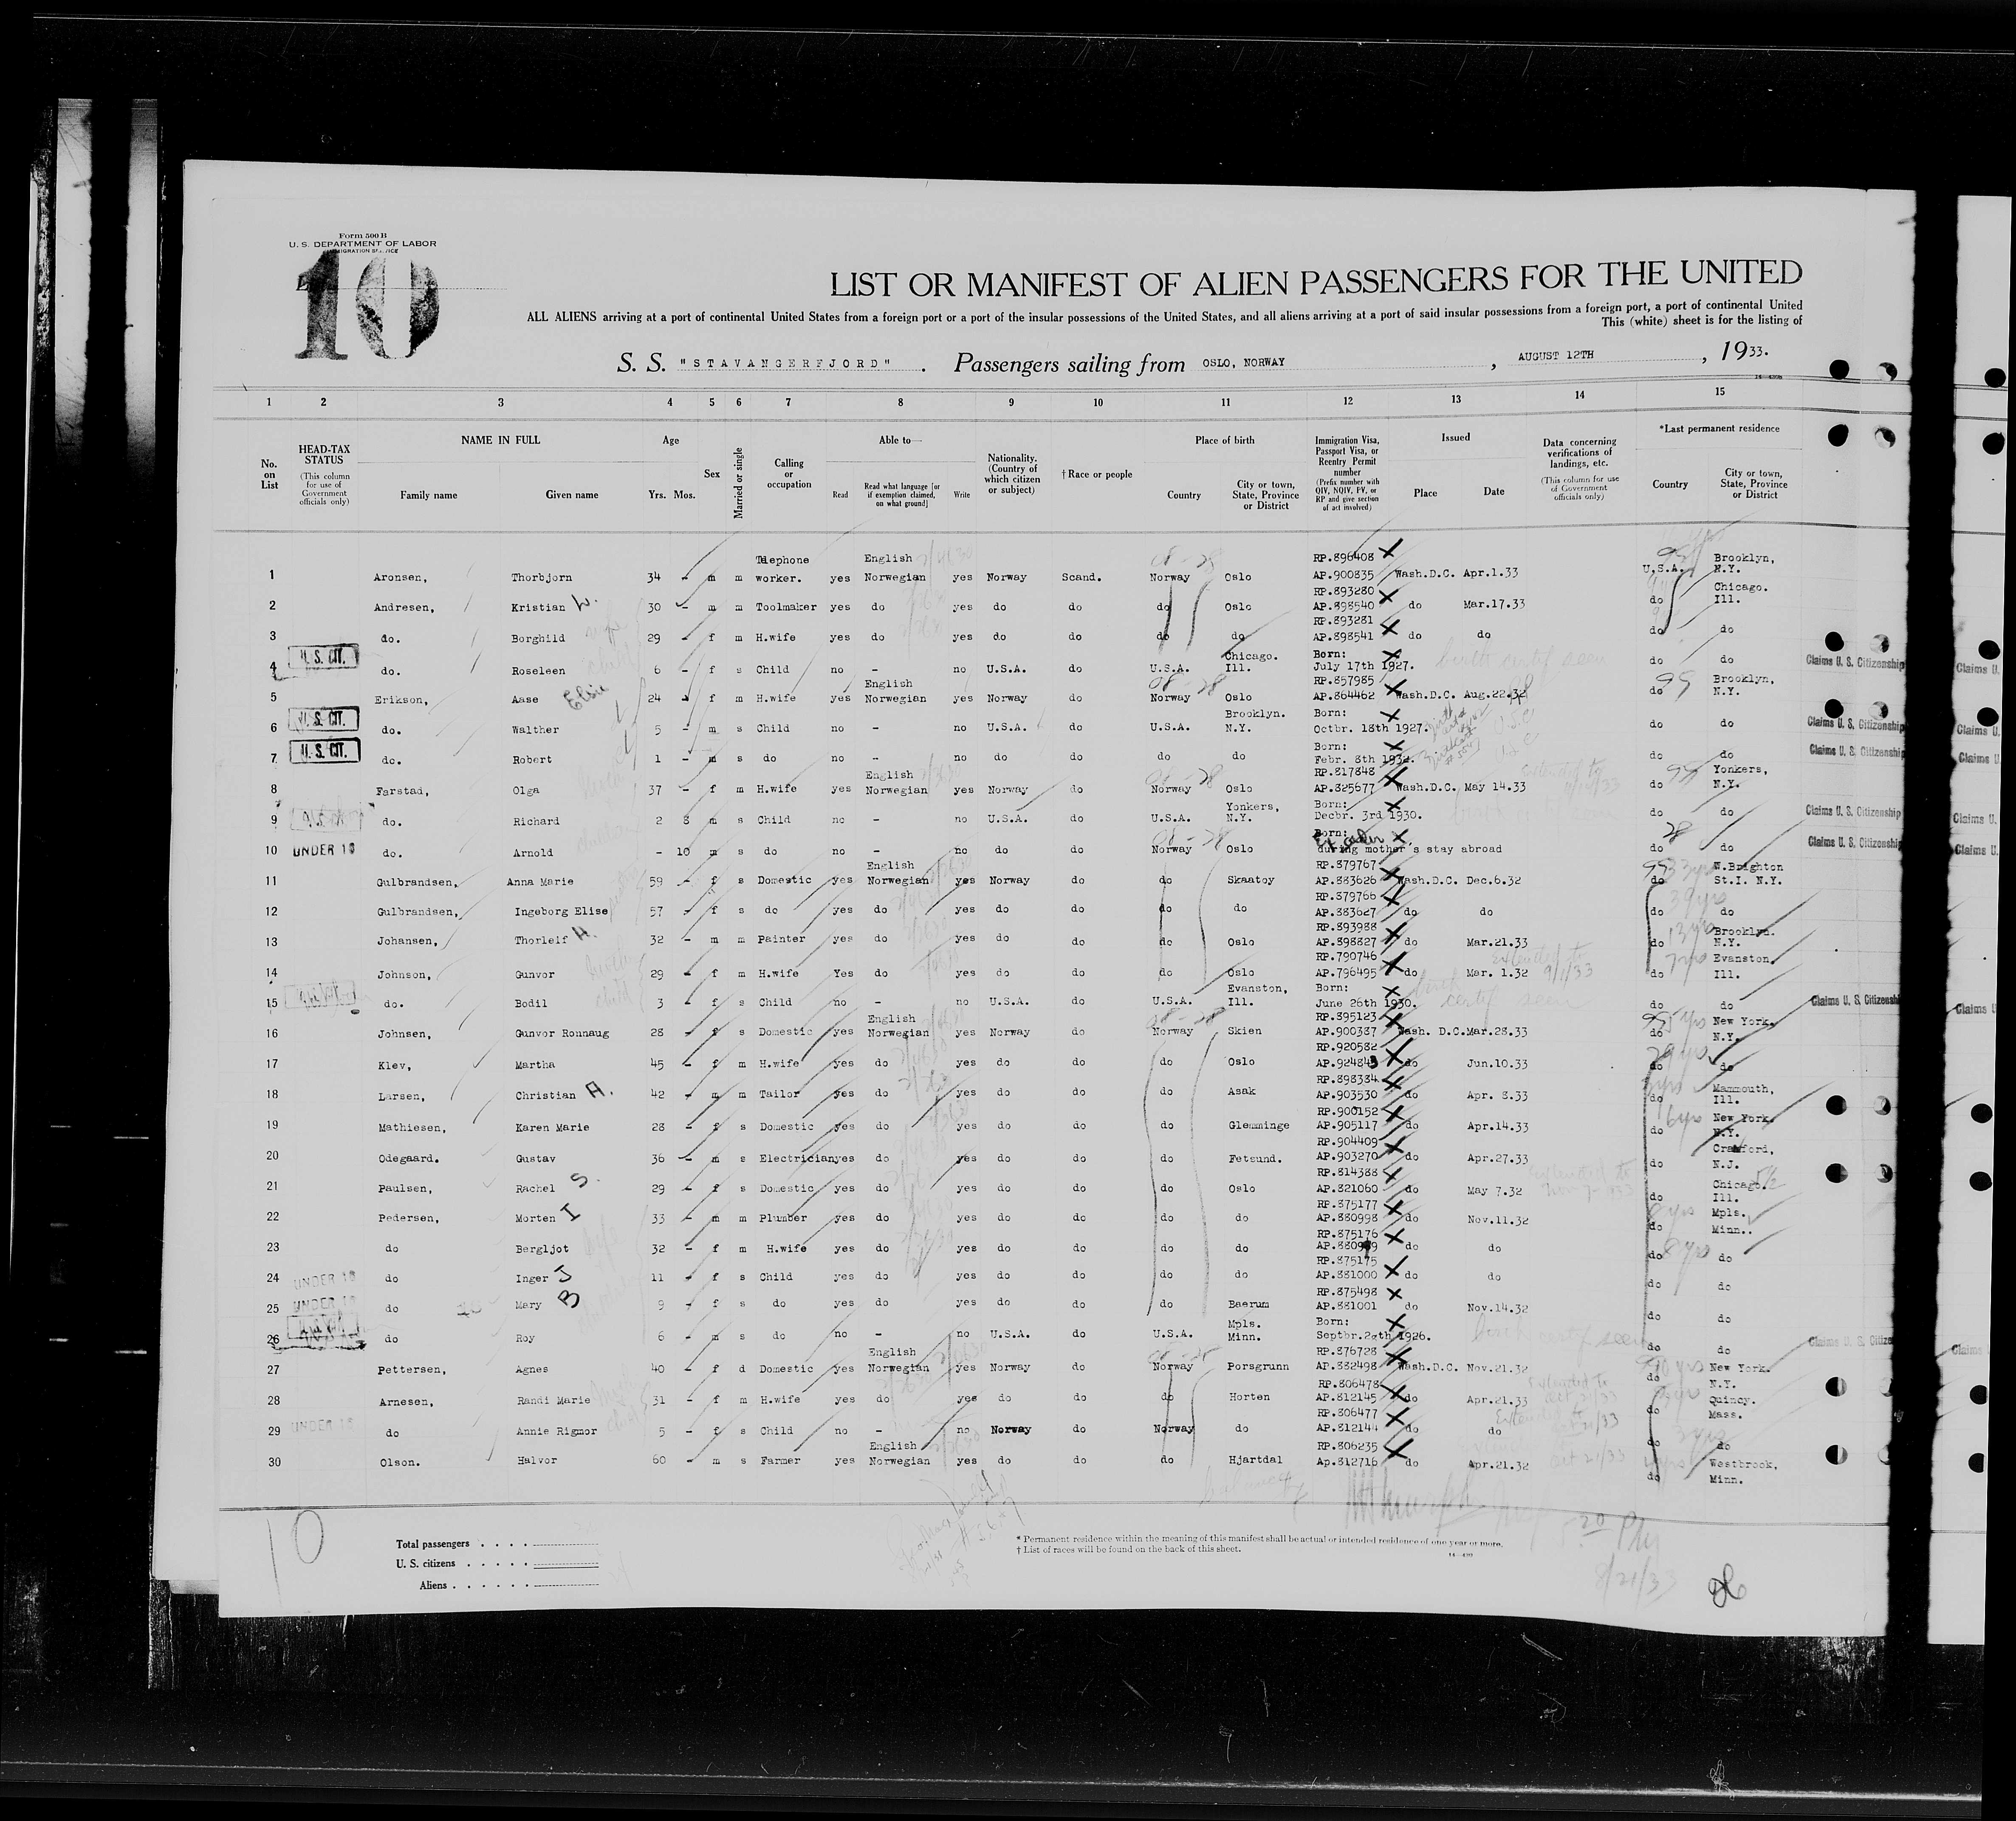 Form 500 B
U. S. DEPARTMENT OF LABOR
10
LIST OR MANIFEST OF ALIEN PASSENGERS FOR THE UNITED
ALL ALIENS arriving at a port of continental United States from a foreign port or a port of the insular possessions of the United States, and all aliens arriving at a port of said insular possessions from a foreign port, a port of continental United
This (white) sheet is for the listing of
S. S. "STAVANGERFJORD". Passengers sailing from OSLO, NORWAY, AUGUST 12TH, 1933.
1 2 3 4 5 6 7 8 9 10 11 12 13 14 15
No. on List
HEAD-TAX STATUS (This column for use of Government officials only)
NAME IN FULL Family name Given name
Age Yrs. Mos.
Sex
Married or single
Calling or occupation
Able to— Read Read what language [or if exemption claimed, on what ground] Write
Nationality. (Country of which citizen or subject)
†Race or people
Place of birth Country City or town, State, Province or District
Immigration Visa, Passport Visa, or Reentry Permit number (Prefix number with QIV, NQIV, PV, or RP and give section of act involved)
Issued Place Date
Data concerning verifications of landings, etc. (This column for use of Government officials only)
*Last permanent residence Country City or town, State, Province or District
1 Aronsen, Thorbjorn 34 - m m Telephone worker. yes English Norwegian yes Norway Scand. Norway Oslo RP.896408 AP.900835 Wash.D.C. Apr.1.33 U.S.A. Brooklyn, N.Y.
2 Andresen, Kristian 30 - m m Toolmaker yes do yes do do do Oslo RP.893280 AP.898540 do Mar.17.33 do Chicago. Ill.
3 do. Borghild 29 - f m H.wife yes do yes do do do do RP.893281 AP.898541 do do do do
4 U.S. CIT. do. Roseleen 6 - f s Child no - no U.S.A. do U.S.A. Chicago. Ill. Born: July 17th 1927. birth certif seen do do Claims U. S. Citizenship
5 Erikson, Aase Elsie 24 - f m H.wife yes English Norwegian yes Norway do Norway Oslo RP.857985 AP.864462 Wash.D.C. Aug.22.32 do Brooklyn, N.Y.
6 U.S. CIT. do. Walther 5 - m s Child no - no U.S.A. do U.S.A. Brooklyn. N.Y. Born: Octbr. 18th 1927. do do Claims U. S. Citizenship
7 U.S. CIT. do. Robert 1 - m s do no - no do do do do Born: Febr. 8th 1932. do do Claims U. S. Citizenship
8 Farstad, Olga 37 - f m H.wife yes English Norwegian yes Norway do Norway Oslo RP.817848 AP.825677 Wash.D.C. May 14.33 do Yonkers, N.Y.
9 do. Richard 2 8 m s Child no - no U.S.A. do U.S.A. Yonkers, N.Y. Born: Decbr. 3rd 1930. do do Claims U. S. Citizenship
10 UNDER 16 do. Arnold - 10 m s do no - no do do Norway Oslo Born: during mother's stay abroad do do Claims U. S. Citizenship
11 Gulbrandsen, Anna Marie 59 - f s Domestic yes English Norwegian yes Norway do do Skaatoy RP.879767 AP.883626 Wash.D.C. Dec.6.32 do W.Brighton St.I. N.Y.
12 Gulbrandsen, Ingeborg Elise 57 - f s do yes do yes do do do do RP.879766 AP.883627 do do do 39 yrs do
13 Johansen, Thorleif H. 32 - m m Painter yes do yes do do do Oslo RP.893988 AP.898827 do Mar.21.33 do Brooklyn. N.Y.
14 Johnson, Gunvor 29 - f m H.wife Yes do yes do do do Oslo RP.790746 AP.796495 do Mar. 1.32 9/1/33 do 7 yrs Evanston. Ill.
15 do. Bodil 3 - f s Child no - no U.S.A. do U.S.A. Evanston, Ill. Born: June 26th 1930. birth certif seen do do Claims U. S. Citizenshi
16 Johnsen, Gunvor Ronnaug 28 - f s Domestic yes English Norwegian yes Norway do Norway Skien RP.895123 AP.900387 Wash. D.C. Mar.28.33 do New York. N.Y.
17 Klev, Martha 45 - f m H.wife yes do yes do do do Oslo RP.920582 AP.924843 do Jun.10.33 do do
18 Larsen, Christian A. 42 - m m Tailor yes do yes do do do Asak RP.898384 AP.903530 do Apr. 8.33 do Mammouth, Ill.
19 Mathiesen, Karen Marie 28 - f s Domestic yes do yes do do do Glemminge RP.900152 AP.905117 do Apr.14.33 do New York. N.Y.
20 Odegaard. Gustav 36 - m s Electrician yes do yes do do do Fetsund. RP.904409 AP.903270 do Apr.27.33 do Cranford, N.J.
21 Paulsen, Rachel S. 29 - f s Domestic yes do yes do do do Oslo RP.814388 AP.821060 do May 7.32 do Chicago. Ill.
22 Pedersen, Morten I 33 - m m Plumber yes do yes do do do do RP.875177 AP.880998 do Nov.11.32 do Mpls. Minn..
23 do Bergljot 32 - f m H.wife yes do yes do do do do RP.875176 AP.880999 do do do 8 yrs do
24 UNDER 16 do Inger J 11 - f s Child yes do yes do do do do RP.875175 AP.881000 do do do do
25 UNDER 16 do Mary B 9 - f s do yes do yes do do do Baerum RP.875498 AP.881001 do Nov.14.32 do do
26 do Roy 6 - m s do no - no U.S.A. do U.S.A. Mpls. Minn. Born: 1926. birth certif seen do do Claims U. S. Citize
27 Pettersen, Agnes 40 - f d Domestic yes English Norwegian yes Norway do Norway Porsgrunn RP.876728 AP.882498 Wash.D.C. Nov.21.32 do New York. N.Y.
28 Arnesen, Randi Marie 31 - f m H.wife yes do yes do do do Horten RP.806478 AP.812145 do Apr.21.33 do Quincy. Mass.
29 UNDER 16 do Annie Rigmor 5 - f s Child no - no Norway do Norway do RP.806477 AP.812144 do do do do
30 Olson. Halvor 60 - m s Farmer yes English Norwegian yes do do do Hjartdal RP.806235 Ap.812716 do Apr.21.32 do Westbrook, Minn.
10
Total passengers
U. S. citizens
Aliens
* Permanent residence within the meaning of this manifest shall be actual or intended residence of one year or more.
† List of races will be found on the back of this sheet.
5 20 PM
8/21/33
26